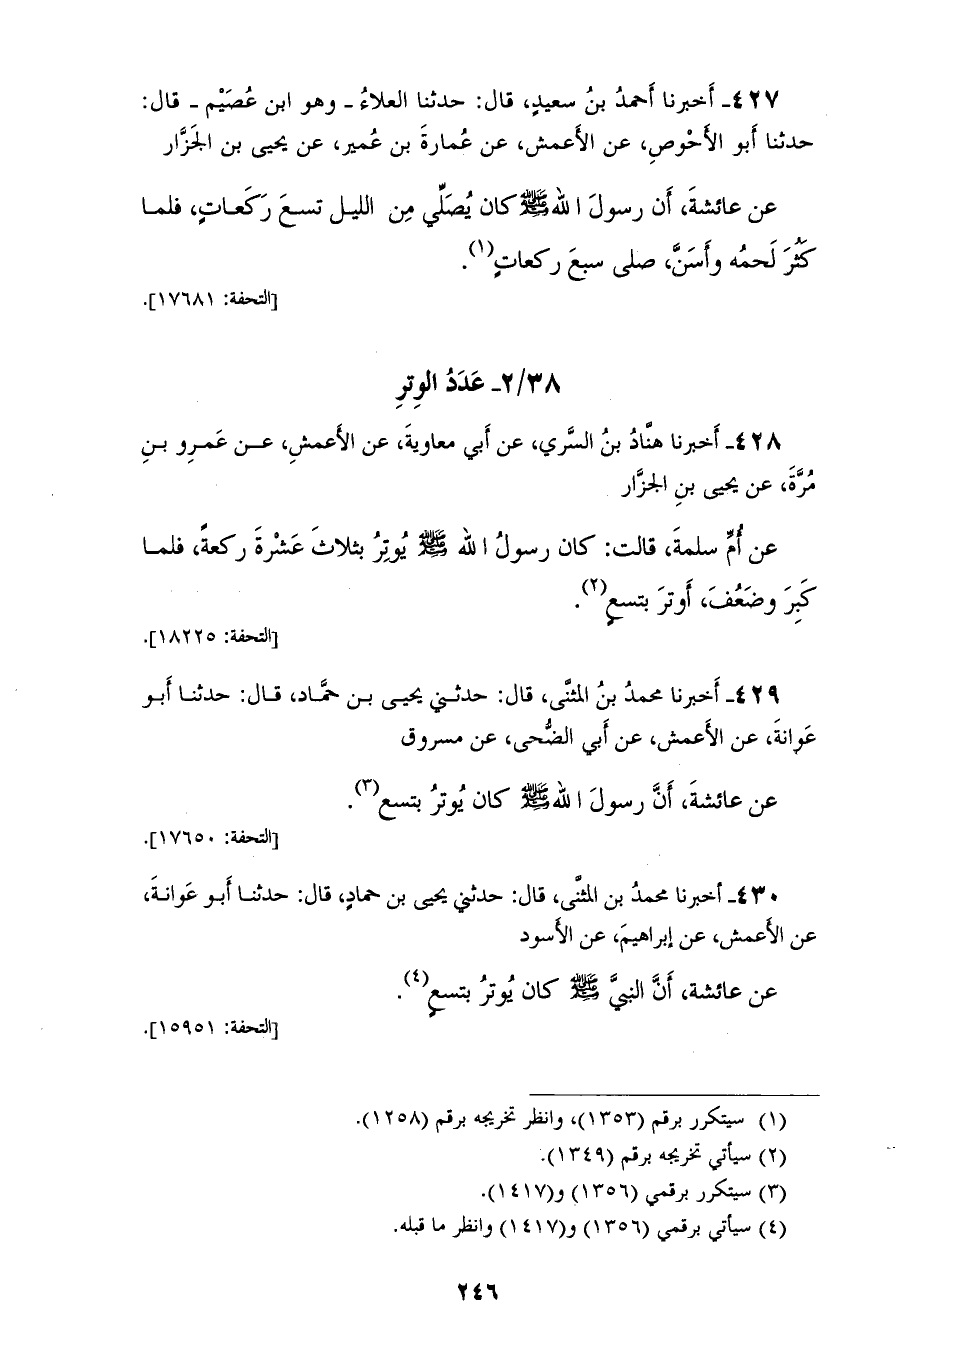 ٤٢٧ـ أَخبرنا أَحمدُ بنُ سعيدٍ، قال: حدثنا العلاءُ ـ وهو ابن عُصَيْم ـ قال:
حدثنا أبو الأَحْوصِ، عن الأَعمش، عن عُمارةَ بن عُمير، عن يحيى بن الجَزَّار
عن عائشةَ، أَن رسولَ الله ﷺ كان يُصَلِّي مِن الليل تسعَ رَكَعاتٍ، فلما
كَثُرَ لَحمُه وأَسَنَّ، صلى سبعَ ركعاتٍ(١).
[التحفة: ١٧٦٨١].
٢/٣٨ـ عَدَدُ الوِترِ
٤٢٨ـ أَخبرنا هنَّادُ بنُ السَّري، عن أَبي معاويةَ، عن الأَعمشِ، عن عَمرِو بنِ
مُرَّةَ، عن يحيى بنِ الجزَّار
عن أُمِّ سلمةَ، قالت: كان رسولُ الله ﷺ يُوتِرُ بثلاثَ عَشْرةَ ركعةً، فلما
كَبِرَ وضَعُفَ، أَوترَ بتسعٍ(٢).
[التحفة: ١٨٢٢٥].
٤٢٩ـ أَخبرنا محمدُ بنُ المثنَّى، قال: حدثني يحيى بن حمَّاد، قال: حدثنا أَبو
عَوانةَ، عن الأَعمش، عن أَبي الضُّحى، عن مسروق
عن عائشةَ، أَنَّ رسولَ الله ﷺ كان يُوترُ بتسعٍ(٣).
[التحفة: ١٧٦٥٠].
٤٣٠ـ أخبرنا محمدُ بن المثنَّى، قال: حدثني يحيى بن حمادٍ، قال: حدثنا أَبو عَوانةَ،
عن الأَعمش، عن إبراهيمَ، عن الأَسود
عن عائشة، أَنَّ النبيَّ ﷺ كان يُوترُ بتسعٍ(٤).
[التحفة: ١٥٩٥١].
(١) سيتكرر برقم (١٣٥٣)، وانظر تخريجه برقم (١٢٥٨).
(٢) سيأتي تخريجه برقم (١٣٤٩).
(٣) سيتكرر برقمي (١٣٥٦) و(١٤١٧).
(٤) سيأتي برقمي (١٣٥٦) و(١٤١٧) وانظر ما قبله.
٢٤٦